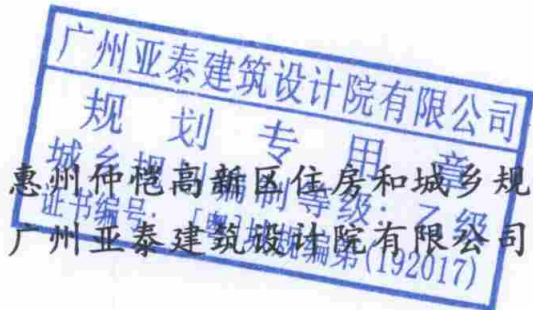 广州亚泰建筑设计院有限公司
规划专用章
城乡规划编制等级:乙级
证书编号:[粤]城规编第(192017)
惠州仲恺高新区住房和城乡规
广州亚泰建筑设计院有限公司